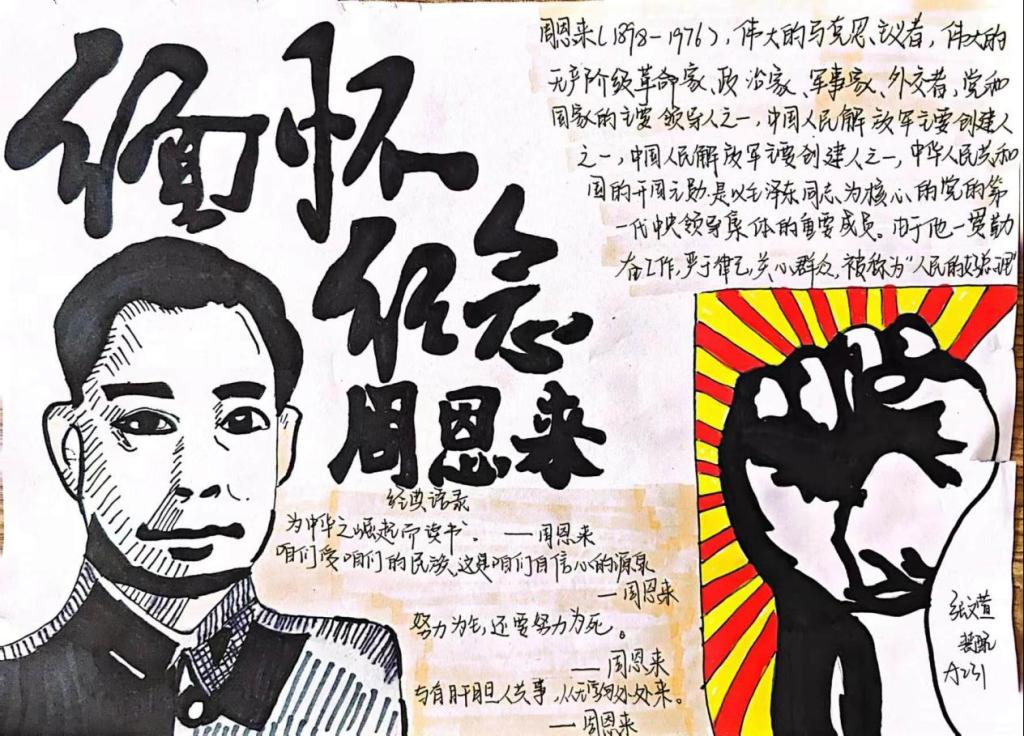 缅怀
纪念
周恩来
周恩来(1898-1976),伟大的马克思主义者,伟大的
无产阶级革命家、政治家、军事家、外交者,党和
国家的主要领导人之一,中国人民解放军主要创建人
之一,中国人民解放军主要创建人之一,中华人民共和
国的开国元勋,是以毛泽东同志为核心的党的第
一代中央领导集体的重要成员。由于他一贯勤
奋工作,严于律己,关心群众,被称为“人民的好总理”
经典语录
为中华之崛起而读书。——周恩来
咱们爱咱们的民族,这是咱们自信心的源泉
—周恩来
努力为生,还要努力为死。
——周恩来
与有肝胆人共事,从无字句处来。
——周恩来
A231